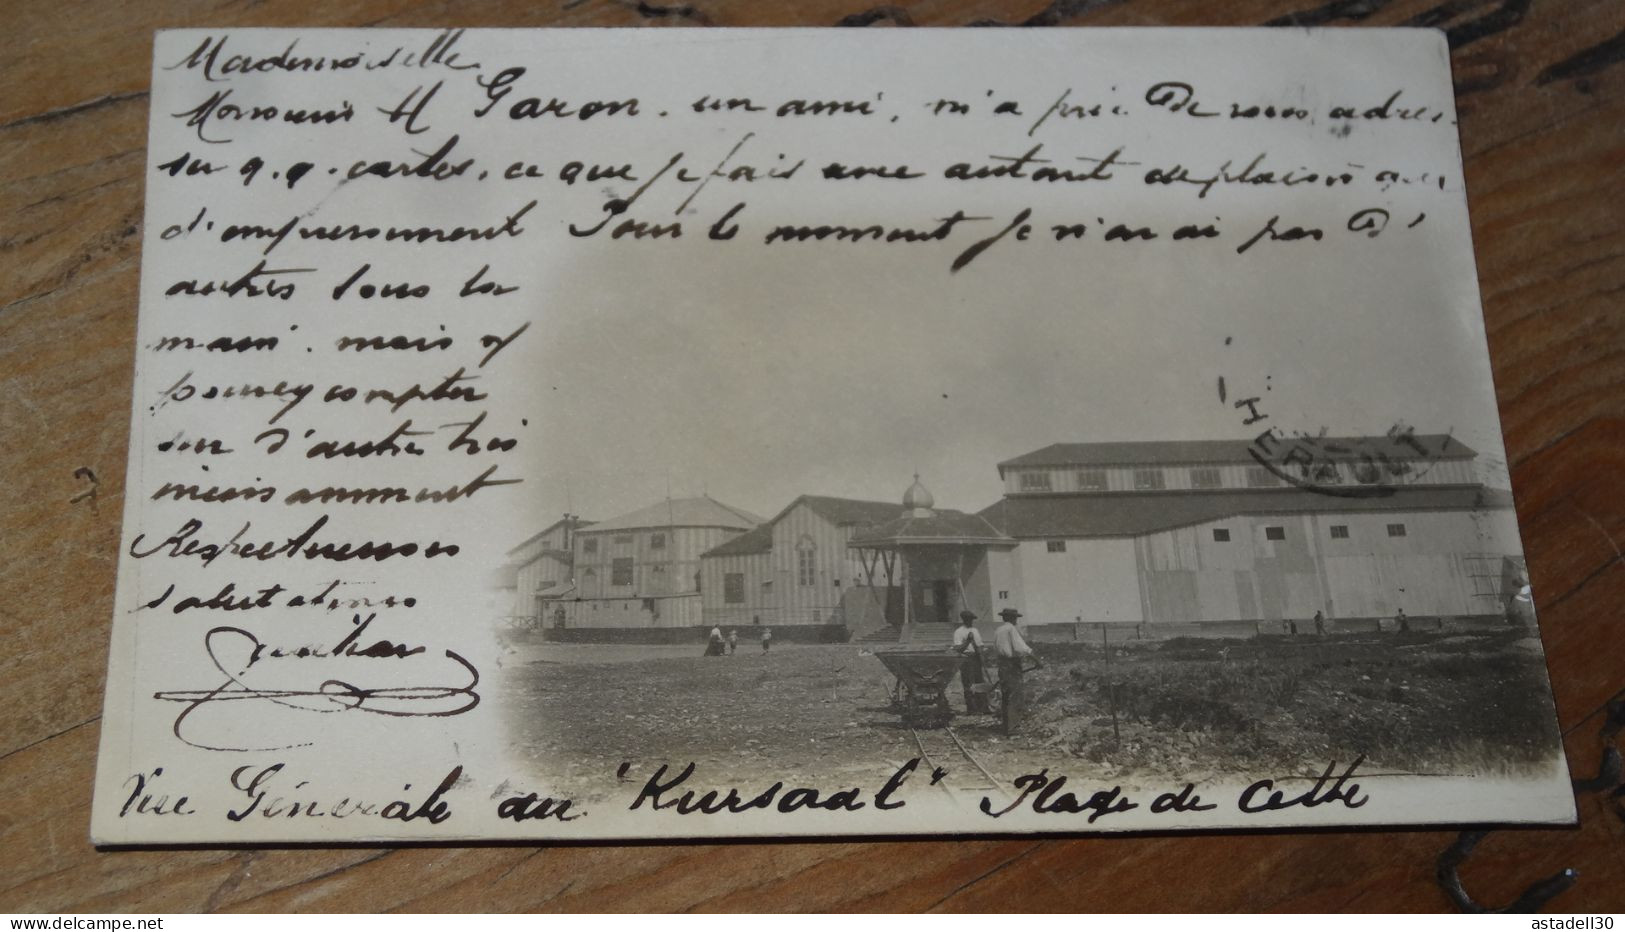 Mademoiselle
Monsieur H Garon. un ami, m'a prié De vous adres
ser q.q. cartes, ce que je fais avec autant de plaisir que
d'empressement Pour le moment je n'en ai pas D'
autres sous la
main. mais
pouvez compter
sur d'autre très
incessamment
Respectueuses
salutations
Vue Générale du "Kursaal" Plage de Cette
HERAULT
astadell30